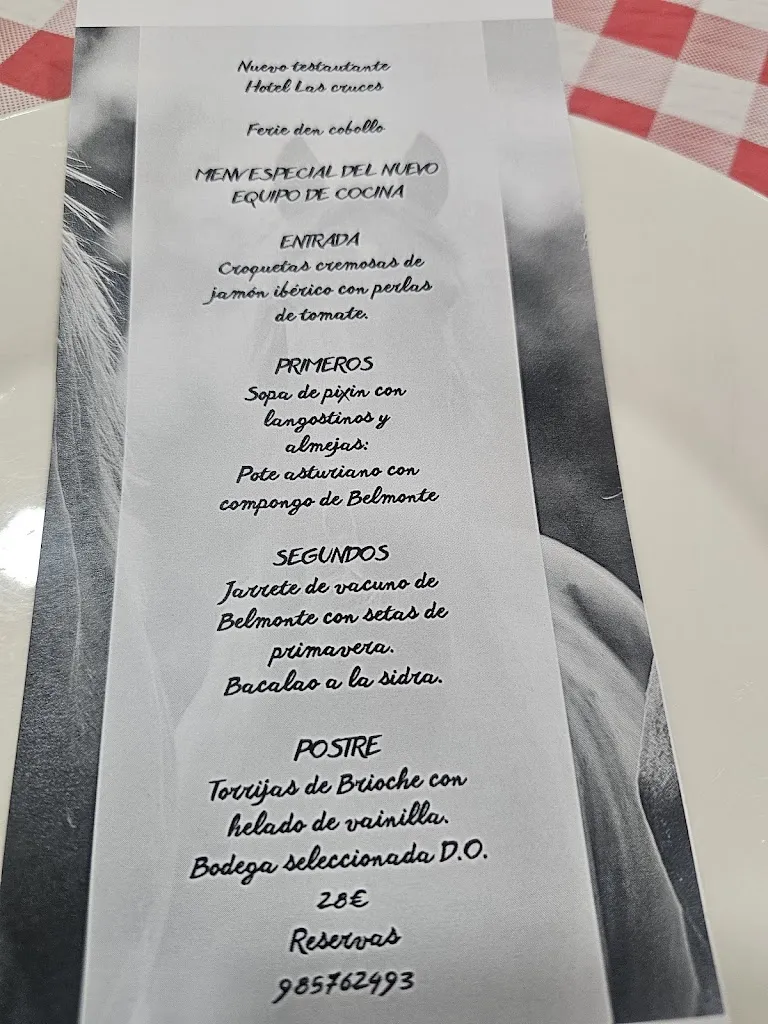 Nuevo testautante
Hotel Las cruces
Ferie den cobollo
MENV ESPECIAL DEL NUEVO
EQUIPO DE COCINA
ENTRADA
Croquetas cremosas de
jamón ibérico con perlas
de tomate.
PRIMEROS
Sopa de pixin con
langostinos y
almejas:
Pote asturiano con
compongo de Belmonte
SEGUNDOS
Jarrete de vacuno de
Belmonte con setas de
primavera.
Bacalao a la sidra.
POSTRE
Torrijas de Brioche con
helado de vainilla.
Bodega seleccionada D.O.
28€
Reservas
985762493